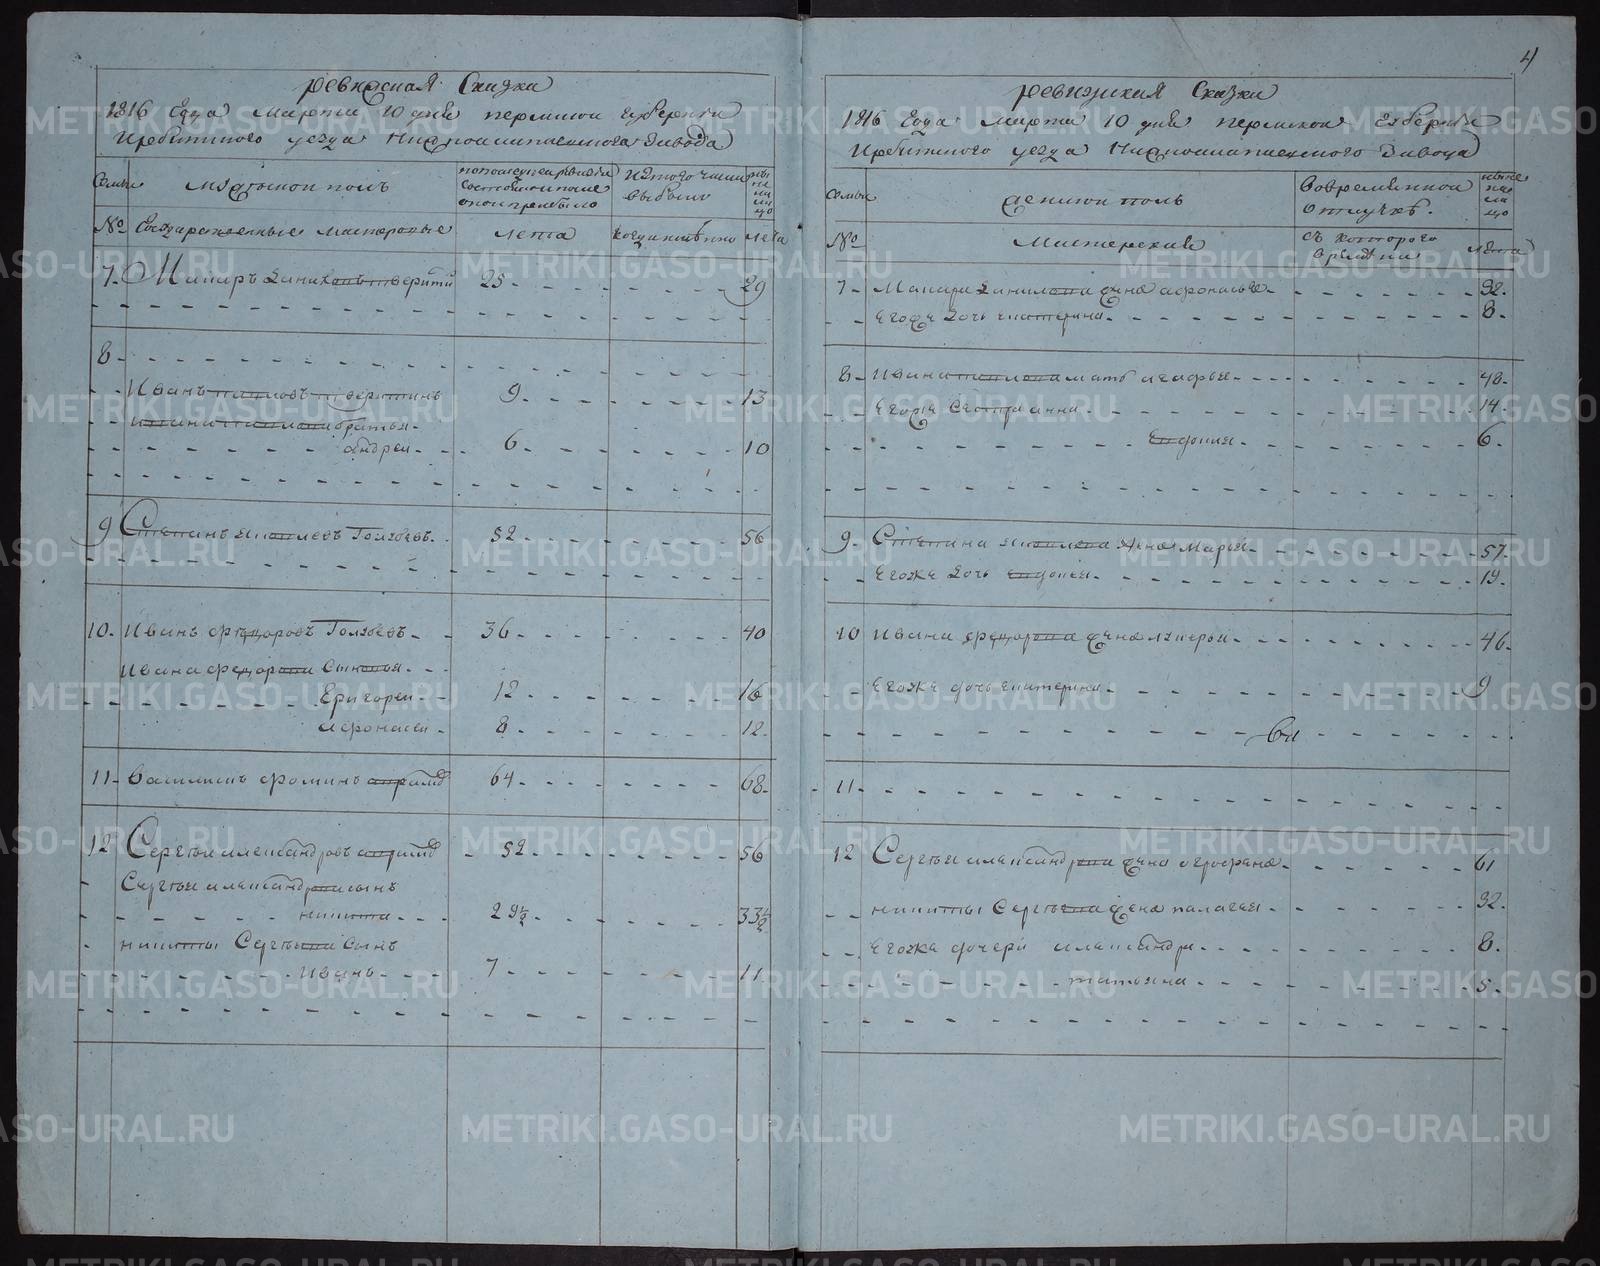 4
ревизская Сказка
1816 Года Марта 10 дня пермской губернии
Ирбитского уезда Нижносинячихинского Завода
Семьи мужеской полъ по последней ревизии состояло и после оной прибыло Из того числа выбыло ныне на лицо
№ Государственные мастеровые лета когда имянно лета
7 Макаръ Данилов 25 29
8
Иванъ павловъ 9 13
Ивана павлова братья
андреи 6 10
9 Степанъ яковлевъ Голубевъ 52 56
10 Иванъ федоровъ Голубевъ 36 40
Ивана федорова Сыновья
Григореи 12 16
Афонасеи 8 12
11 Василеи фоминъ 64 68
12 Сергеи александровъ 52 56
Сергея александрова сынъ
никита 29½ 33½
никиты Сергеева Сынъ
Иванъ 7 11
ревизская Сказка
1816 Года Марта 10 дня пермской Губернии
Ирбитского уезда Завода
Семьи женской полъ Во временной отлучке ныне на лицо
№ Мастерские съ которого времени лета
7 Макара Данилова жена афонасья 32
Егоже Дочь екатерина 8
8 Ивана павлова мать агафья 48
Егоже Сестра анна 14
Евдокия 6
9 Степана яковлева Жена Марья 57
Егоже Дочь евдокия 19
10 Ивана федорова жена лукерья 46
Егоже дочь екатерина 9
11
12 Сергея александрова жена 61
никиты Сергеева жена палагея 32
Егоже дочери александра 8
татьяна 5
METRIKI.GASO-URAL.RU